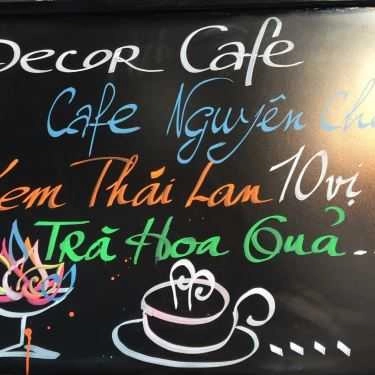 Decor Cafe
Cafe Nguyên Ch
Kem Thái Lan 10 vị
Trà Hoa Quả...